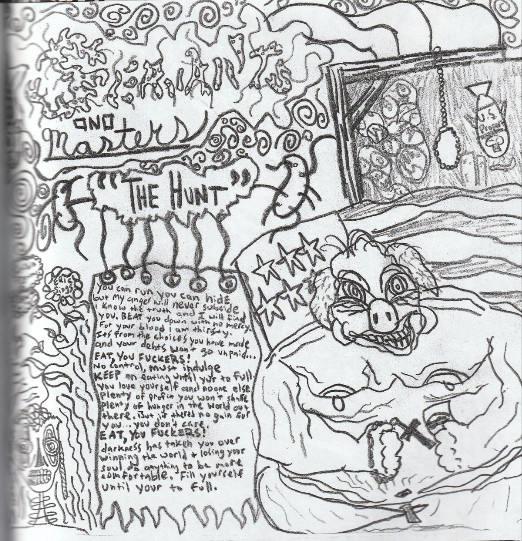 SERVANTS
AND
Masters
"THE HUNT"
U.S.
You can run you can hide
but my anger will never subside
know the truth and I will find
you, BEAT you down with no mercy.
For your blood I am thirsty
Its from the choices you have made
and your debts won't go unpaid...
EAT, YOU FUCKERS!
No control, must indulge
KEEP on eating until your to full
you love yourself and no one else
plenty of profit you won't share
plenty of hunger in the world out
there. But if there's no gain for
you... you don't care.
EAT, YOU FUCKERS!
darkness has taken you over
winning the world + losing your
soul do anything to be more
comfortable. Fill yourself
until your to full.